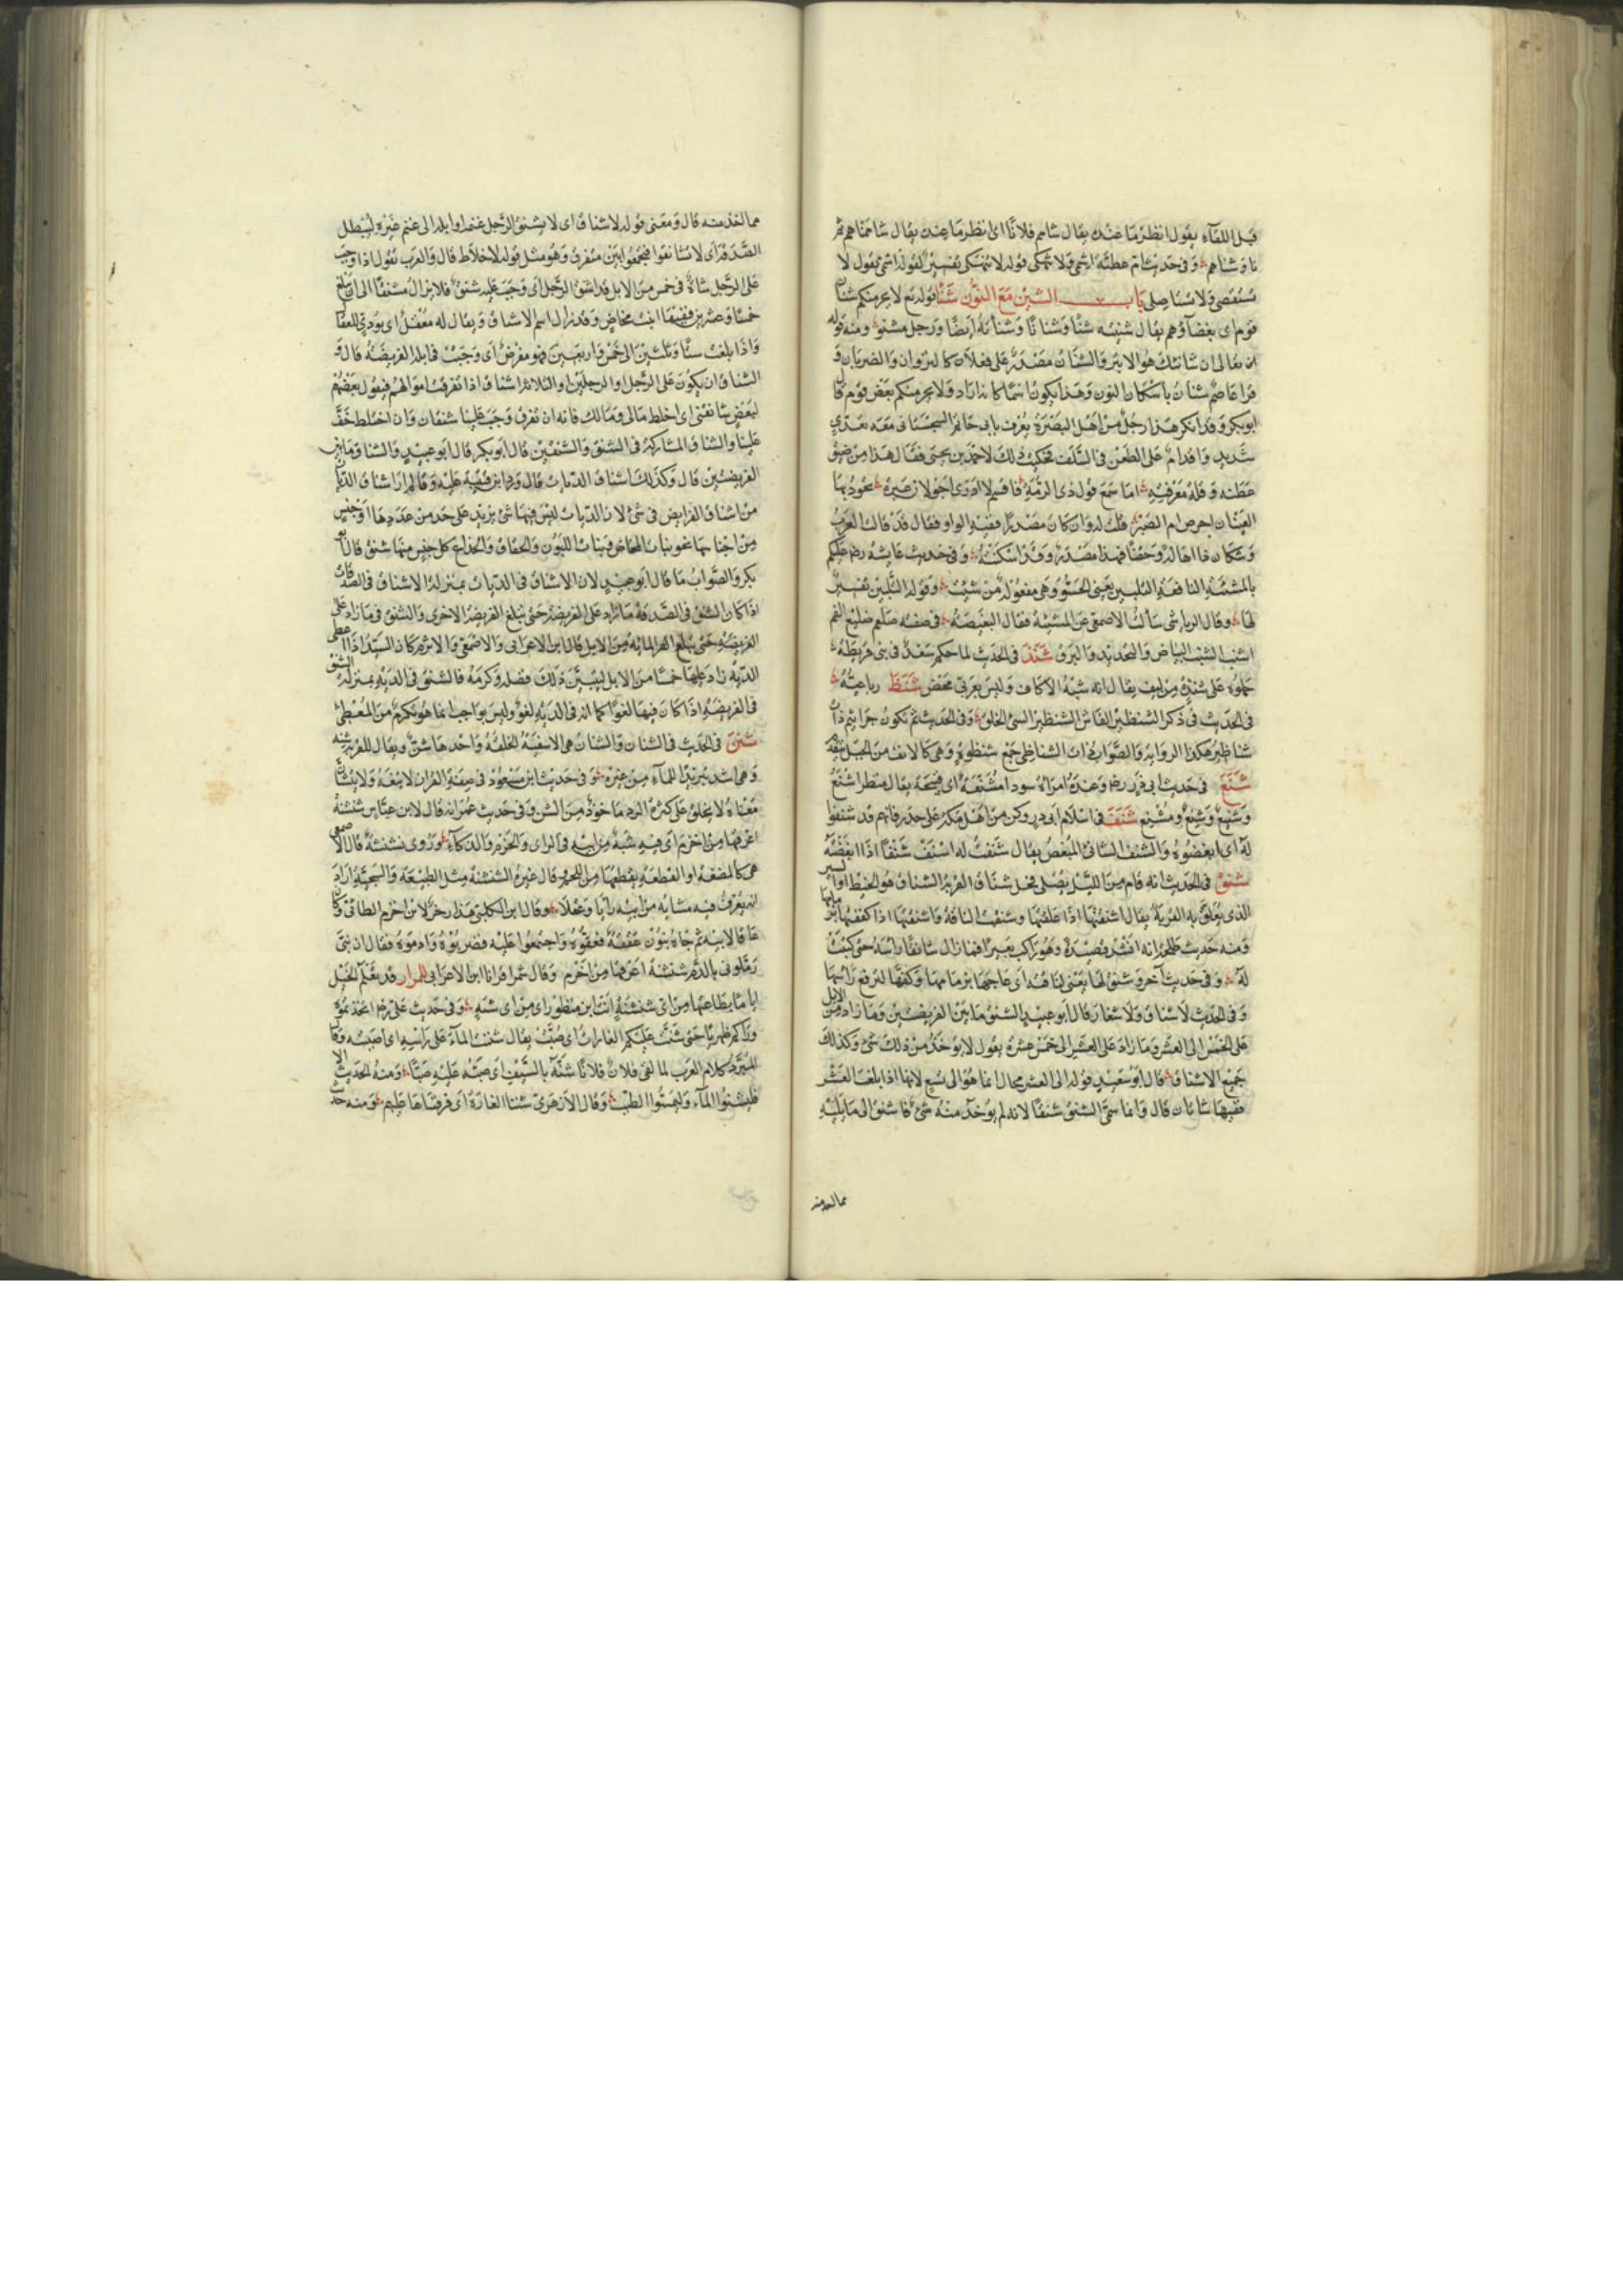 قبل اللقآء يقول انظر ما عندك يقال شامم فلانًا اى انظر ما عنده يقال شاممناهم ثم
ناوشناهم وفى حديث ام عطية اشمى ولا تنهكى قوله لا تنهكى تفسير لقوله اشمى يقول لا
تستقصى ولا تستاصلى باب الشين مع النون شنأ قوله تع لا يجرمنكم شنآن
قوم اى بغضآء قوم يقال شنئته شنأ وشنانا وشنأنة ايضا ورجل مشنو ومنه قوله
تعالى ان شانئك هو الابتر والشنان مصدر على فعلان كالنزوان والضربان و
قرا عاصم شنان باسكان النون وهذا يكون اسمًا كانه اراد ولا يجرمنكم بغض قوم قال
ابو بكر وقد انكر هذا رجل من اهل البصرة يعرف بابى حاتم السجستانى معه تعدى
شديد واقدام على الطعن فى السلف فحكيت ذلك لاحمد بن يحيى فقال هذا من ضيق
عطنه وقلة معرفته اما سمع قول ذى الرمة فاقسم لا ادرى اجولان عبرة تجود بها
العينان احرى ام الصبر قلت له وان كان مصدرا ففيه الواو فقال قد قالت العرب
وشكان ذا اهالة وحقنا فهذا مصدر وقد اسكنته وفى حديث عايشة رضها عليكم
بالمشنئة النافعة التلبين يعنى الحسو وهى مفعولة من شنئت وقوله التلبين تفسير
لها وقال الرياشى سالت الاصمعى عن المشنئة فقال البغيضة فى صفته صلعم ضليع الفم
اشنب الشنب البياض والتحديد والبرق شنذ فى الحديث لما حكم سعد فى بنى قريظة
حملوه على شنذة من ليف يقال انه شبه الاكاف وليس بعربى محض شنظ رباعيته
فى الحديث فى ذكر الشنظير الفاش الشنظير السئ الخلق وفى الحديث ثم تكون جراثيم ذات
شناظير هكذا الرواية والصواب ذات الشناظى جمع شنظوة وهى كالانف من الجبل
شنع فى حديث ابى ذر رضه وعنده امراة سودا مشنعة اى قبيحة يقال منظر اشنع
وشنيع وشنع ومشنع شنف فى اسلام ابى ذر وكن من اهل مكة على حذر فانهم قد شنفوا
له اى ابغضوه والشنف الشانئ المبغض يقال شنفت له اشنف شنفا اذا ابغضته
شنق فى الحديث انه قام من الليل يصلى فحل شناق القربة الشناق هو الخيط او السير
الذى يعلق به القربة يقال اشنقتها اذا علقتها وشنقت الناقة واشنقتها اذا كففتها بزمامها
ومنه حديث طلحة انه انشد قصيدة وهو راكب بعيرا فما زال شانقا راسه حتى كتبت
له وفى حديث آخر وشنق لها يعنى لناقته اى عاجها بزمامها وكفها لترفع راسها
وفى الحديث لا شناق ولا شغار قال ابو عبيد الشنق ما بين الفريضتين وما زاد من الابل
على الخمس الى العشر وما زاد على العشر الى خمس عشرة يقول لا يوخذ من ذلك شئ وكذلك
جميع الاشناق قال ابو سعيد قوله الى العشر محال انما هو الى تسع لانها اذا بلغت العشر
ففيها شاتان قال وانما سمى الشنق شنقا لانه لم يوخذ منه شئ فاشنق الى ما يليه
مما اخذ منه
مما اخذ منه قال ومعنى قوله لا شناق اى لا يشنق الرجل غنمه او ابله الى غنم غيره ليبطل
الصدقة اى لا تشانقوا فتجمعوا بين متفرق وهو مثل قوله لا خلاط قال والعرب تقول اذا وجب
على الرجل شاة فى خمس من الابل قد اشنق الرجل اى وجب عليه شنق فلا يزال مشنقا الى ان يبلغ
خمسا وعشرين ففيها ابنت مخاض وقد زال اسم الاشناق ويقال له معقل اى يودى للعقال
واذا بلغت ستا وثلثين الى خمس واربعين فهو مفرض اى وجبت فى ابله الفريضة قال و
الشناق ان يكون على الرجل او الرجلين او الثلاثة اشناق اذا تفرقت اموالهم فيقول بعضهم
لبعض شانقنى اى اخلط مالى ومالك فانه ان تفرق وجب علينا شنقان وان اختلط خف
علينا والشناق المشاركة فى الشنق والشنقين قال ابو بكر قال ابو عبيد والشناق ما بين
الفريضتين قال وكذلك اشناق الديات قال ورد ابن قتيبة عليه وقال لم ار اشناق الديات
من اشناق الفرايض فى شئ لان الديات ليس فيها شئ يزيد على حد من عددها او جنس
من اجناسها نحو بنات المخاض وبنات اللبون والحقاق والجذاع كل جنس منها شنق قال ابو
بكر والصواب ما قال ابو عبيد لان الاشناق فى الديات بمنزلة الاشناق فى الصدقات
اذا كان الشنق فى الصدقة ما زاد على الفريضة حتى تبلغ الفريضة الاخرى والشنق فى ما زاد على
الفريضة حتى يبلغ المائة من الابل قال ابن الاعرابى والاصمعى والاثرم كان السيد اذا اعطى
الدية زاد عليها خمسا من الابل ليبين ذلك فضله وكرمه فالشنق فى الدية بمنزلة الشنق
فى الفريضة اذا كان فيها لغوا كما انه فى الدية لغو وليس بواجب انما هو تكرم من المعطى
شنن فى الحديث فى الشنان والشنان هى الاسقية الخلقة واحدها شن ويقال للقربة شنه
وهى اشد تبريدا للمآء من غيره وفى حديث ابن مسعود فى صفة القران لا يتفه ولا يتشان
معناه لا يخلق على كثرة الرد ماخوذ من الشن وفى حديث عمر انه قال لابن عباس شنشنة
اعرفها من اخزم اى فيه شبه من ابيه فى الراى والحزم والذكآء وروى نشنشة قال الاصمعى
هى كالمضغة او القطعة يقطعها من اللحم وقال غيره الشنشنة مثل الطبيعة والسجية اراد
انه يعرف فيه مشابه من ابيه رايا وعقلا وقال ابن الكلبى هذا رجز لابن اخزم الطائى وكان
عاقا لابيه ثم جاه بنون عققة فعقوه واجتمعوا عليه فضربوه وادموه فقال ان بنى
زملونى بالدم شنشنة اعرفها من اخزم وقال شمر اقرانا ابن الاعرابى للمرار قد يعلم الخيل
اياما يطاعنها من اى شنشنة انت ابن منظور اى من اى شنه وفى حديث على رضه اتخذتموه
وراكم ظهريا حتى شنت عليكم الغارات اى صبت يقال شننت المآء على راسه اى صببته وقال
المبرد كلام العرب لما لقى فلان فلانا شنه بالسيف اى صبه عليه صبا ومنه الحديث
فليشنوا المآء وليمسوا الطيب وقال الازهرى شننا الغارة اى فرقناها عليهم ومنه حديث